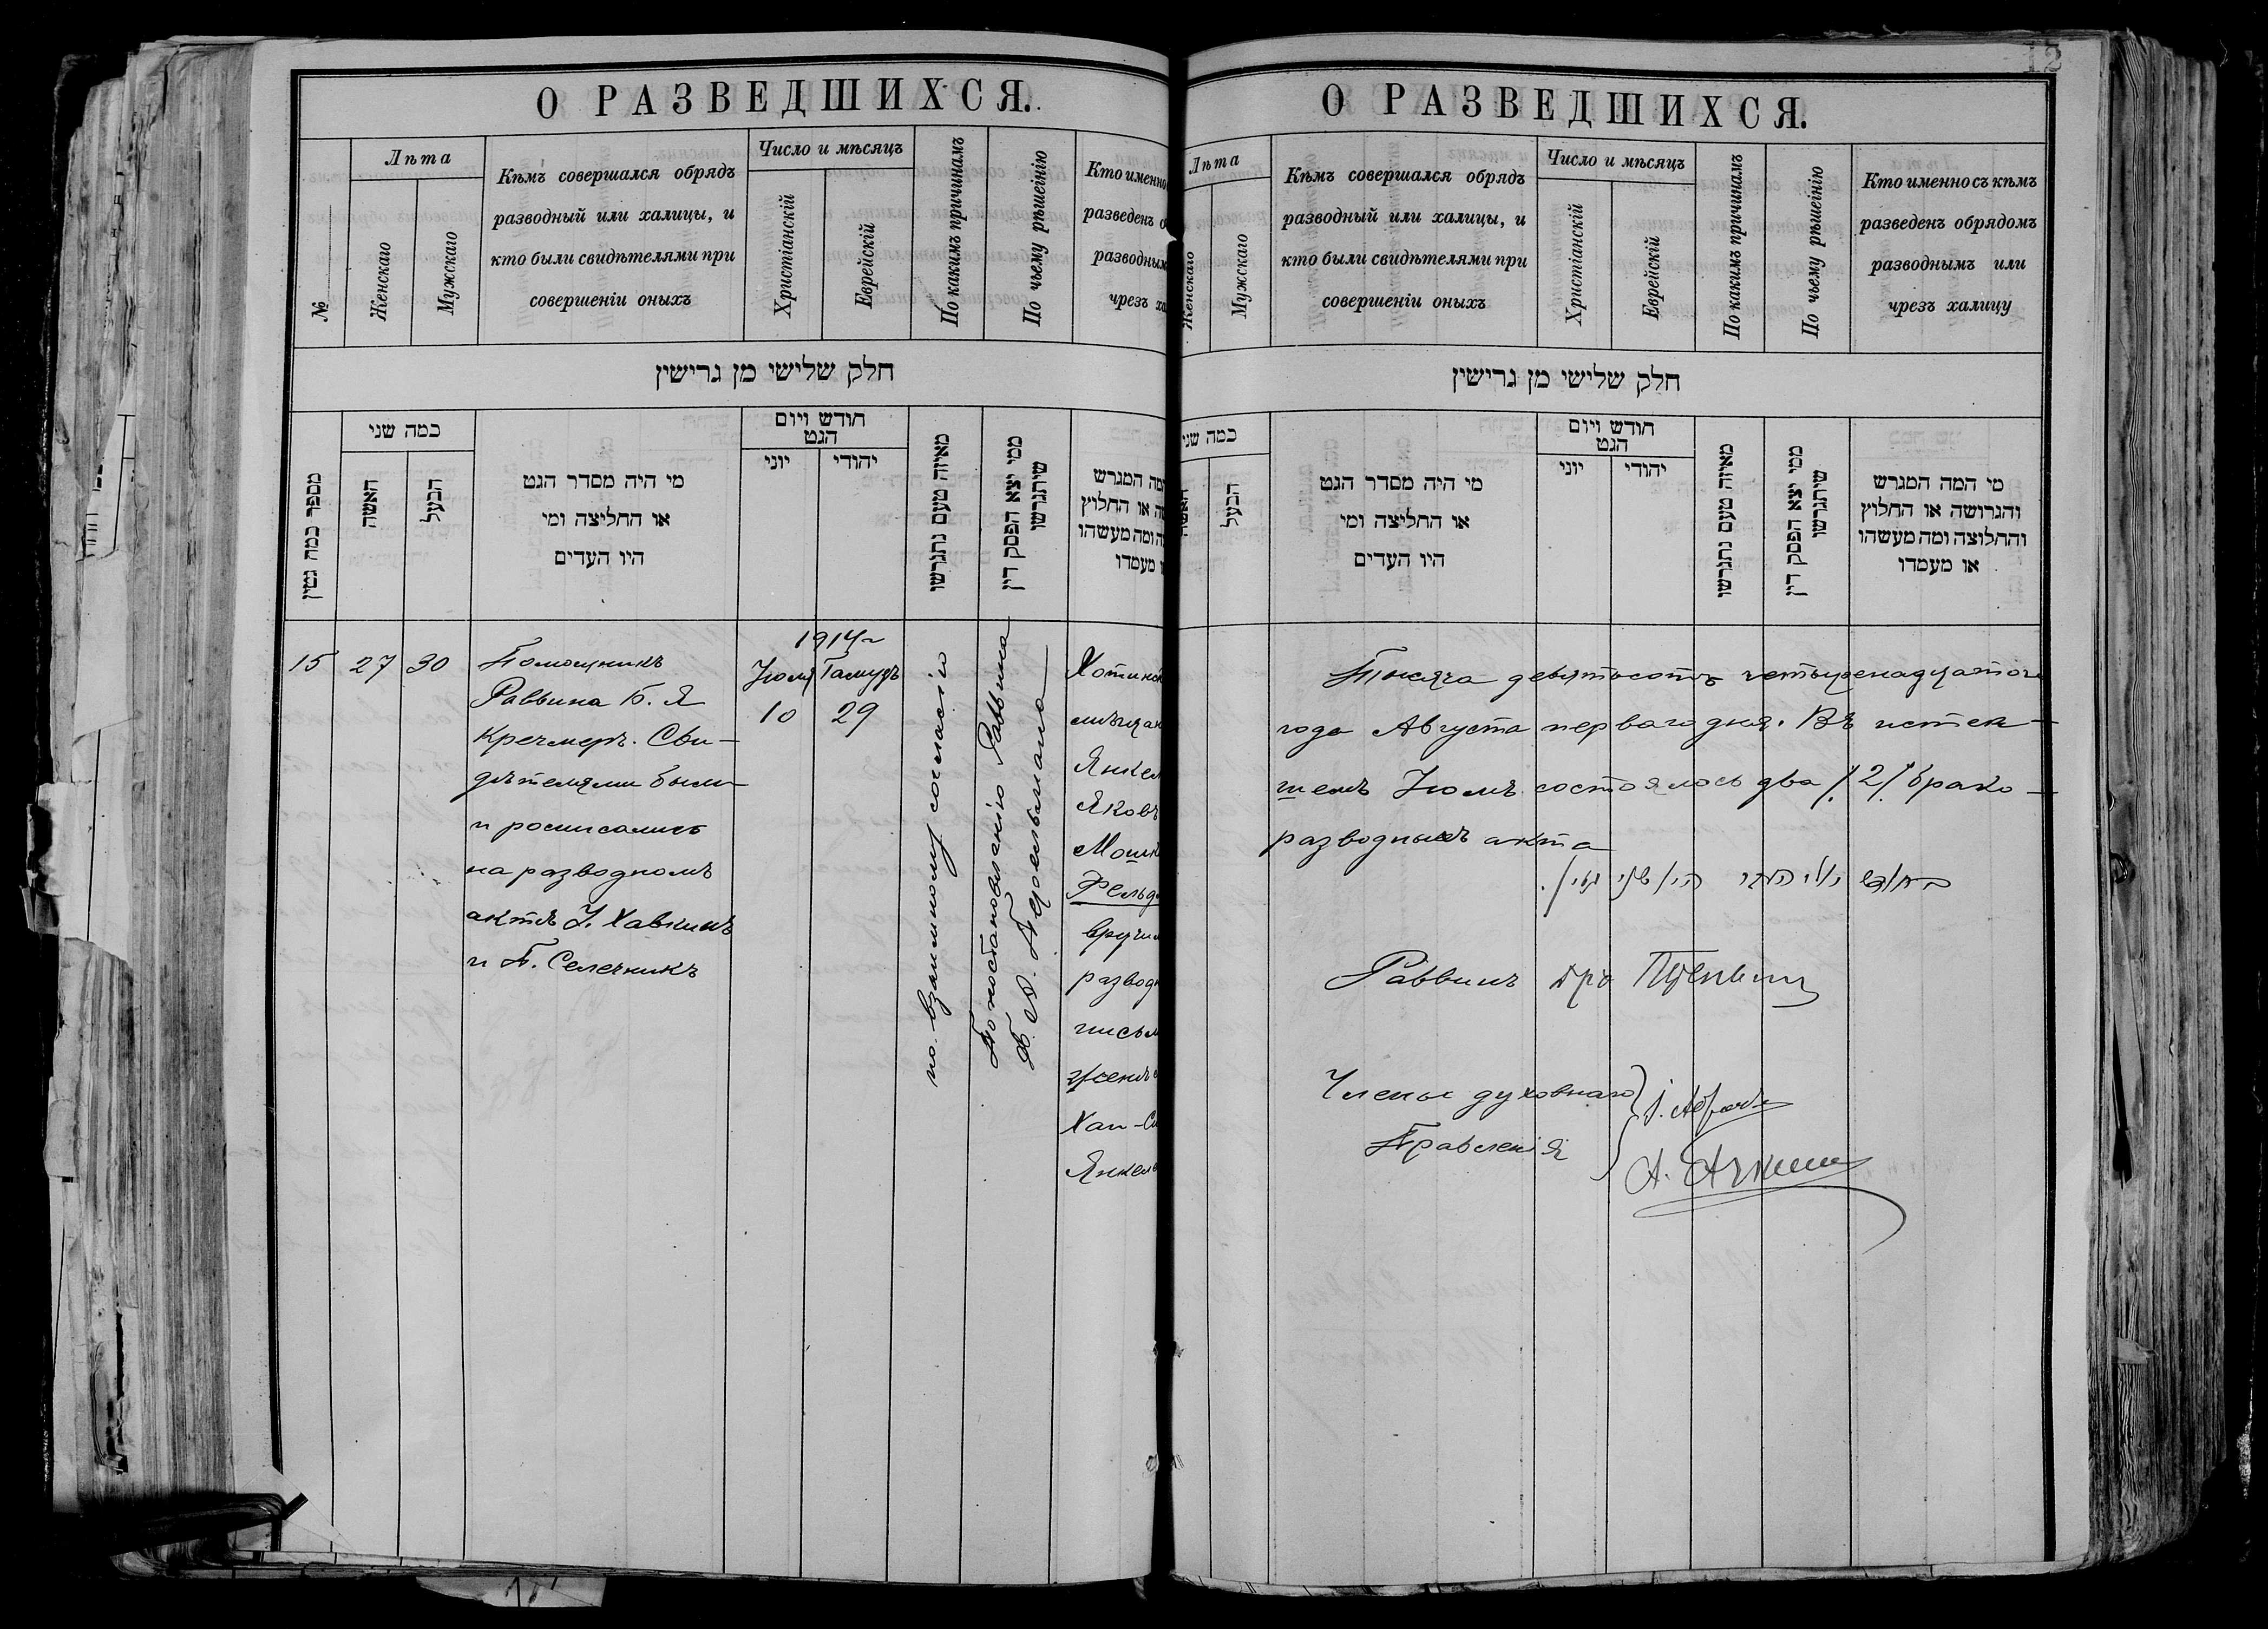 О РАЗВЕДШИХСЯ.
№
Лѣта
Женскаго
Мужскаго
Кѣмъ совершался обрядъ
разводный или халицы, и
кто были свидѣтелями при
совершеніи оныхъ
Число и мѣсяцъ
Христіанскій
Еврейскій
По какимъ причинамъ
По чьему рѣшенію
Кто именно
разведенъ о
разводным
чрезъ ха
חלק שלישי מן גרישין
מספר כמה גטין
כמה שני
האשה
הבעל
מי היה מסדר הגט
או החליצה ומי
היו העדים
חודש ויום
הגט
יוני
יהודי
מאיזה טעם נתגרשו
ממי יצא הפסק דין
שיתגרשו
מה המגרש
או החלוץ
ומה מעשהו
מעמדו
15
27
30
Помощникъ
Раввина Б. Я
Кречмеръ. Сви-
дѣтелями были
и росписались
на разводномъ
актѣ И. Хавкинъ
и П. Селечникъ
1914 г
Іюля Тамузъ
10 29
по взаимному согласію
По постановленію Раввина
Ф. А. Перельмана
Хотинск
мѣщан
Янкел
Яковъ
Мошк
Фельд
вручил
разводн
письм
женѣ
Хаи-С
Янкел
12
О РАЗВЕДШИХСЯ.
Лѣта
Женскаго
Мужскаго
Кѣмъ совершался обрядъ
разводный или халицы, и
кто были свидѣтелями при
совершеніи оныхъ
Число и мѣсяцъ
Христіанскій
Еврейскій
По какимъ причинамъ
По чьему рѣшенію
Кто именно съ кѣмъ
разведенъ обрядомъ
разводнымъ или
чрезъ халицу
חלק שלישי מן גרישין
כמה שני
האשה
הבעל
מי היה מסדר הגט
או החליצה ומי
היו העדים
חודש ויום
הגט
יוני
יהודי
מאיזה טעם נתגרשו
ממי יצא הפסק דין
שיתגרשו
מי המה המגרש
והגרושה או החלוץ
והחלוצה ומה מעשהו
או מעמדו
Тысяча девятьсотъ четырнадцатого
года Августа перваго дня. Въ истек-
шемъ Іюлѣ состоялось два /2/ брако-
разводныхъ акта
בחודש יולי היו שני גטין.
Раввинъ
Члены духовнаго
Правленія